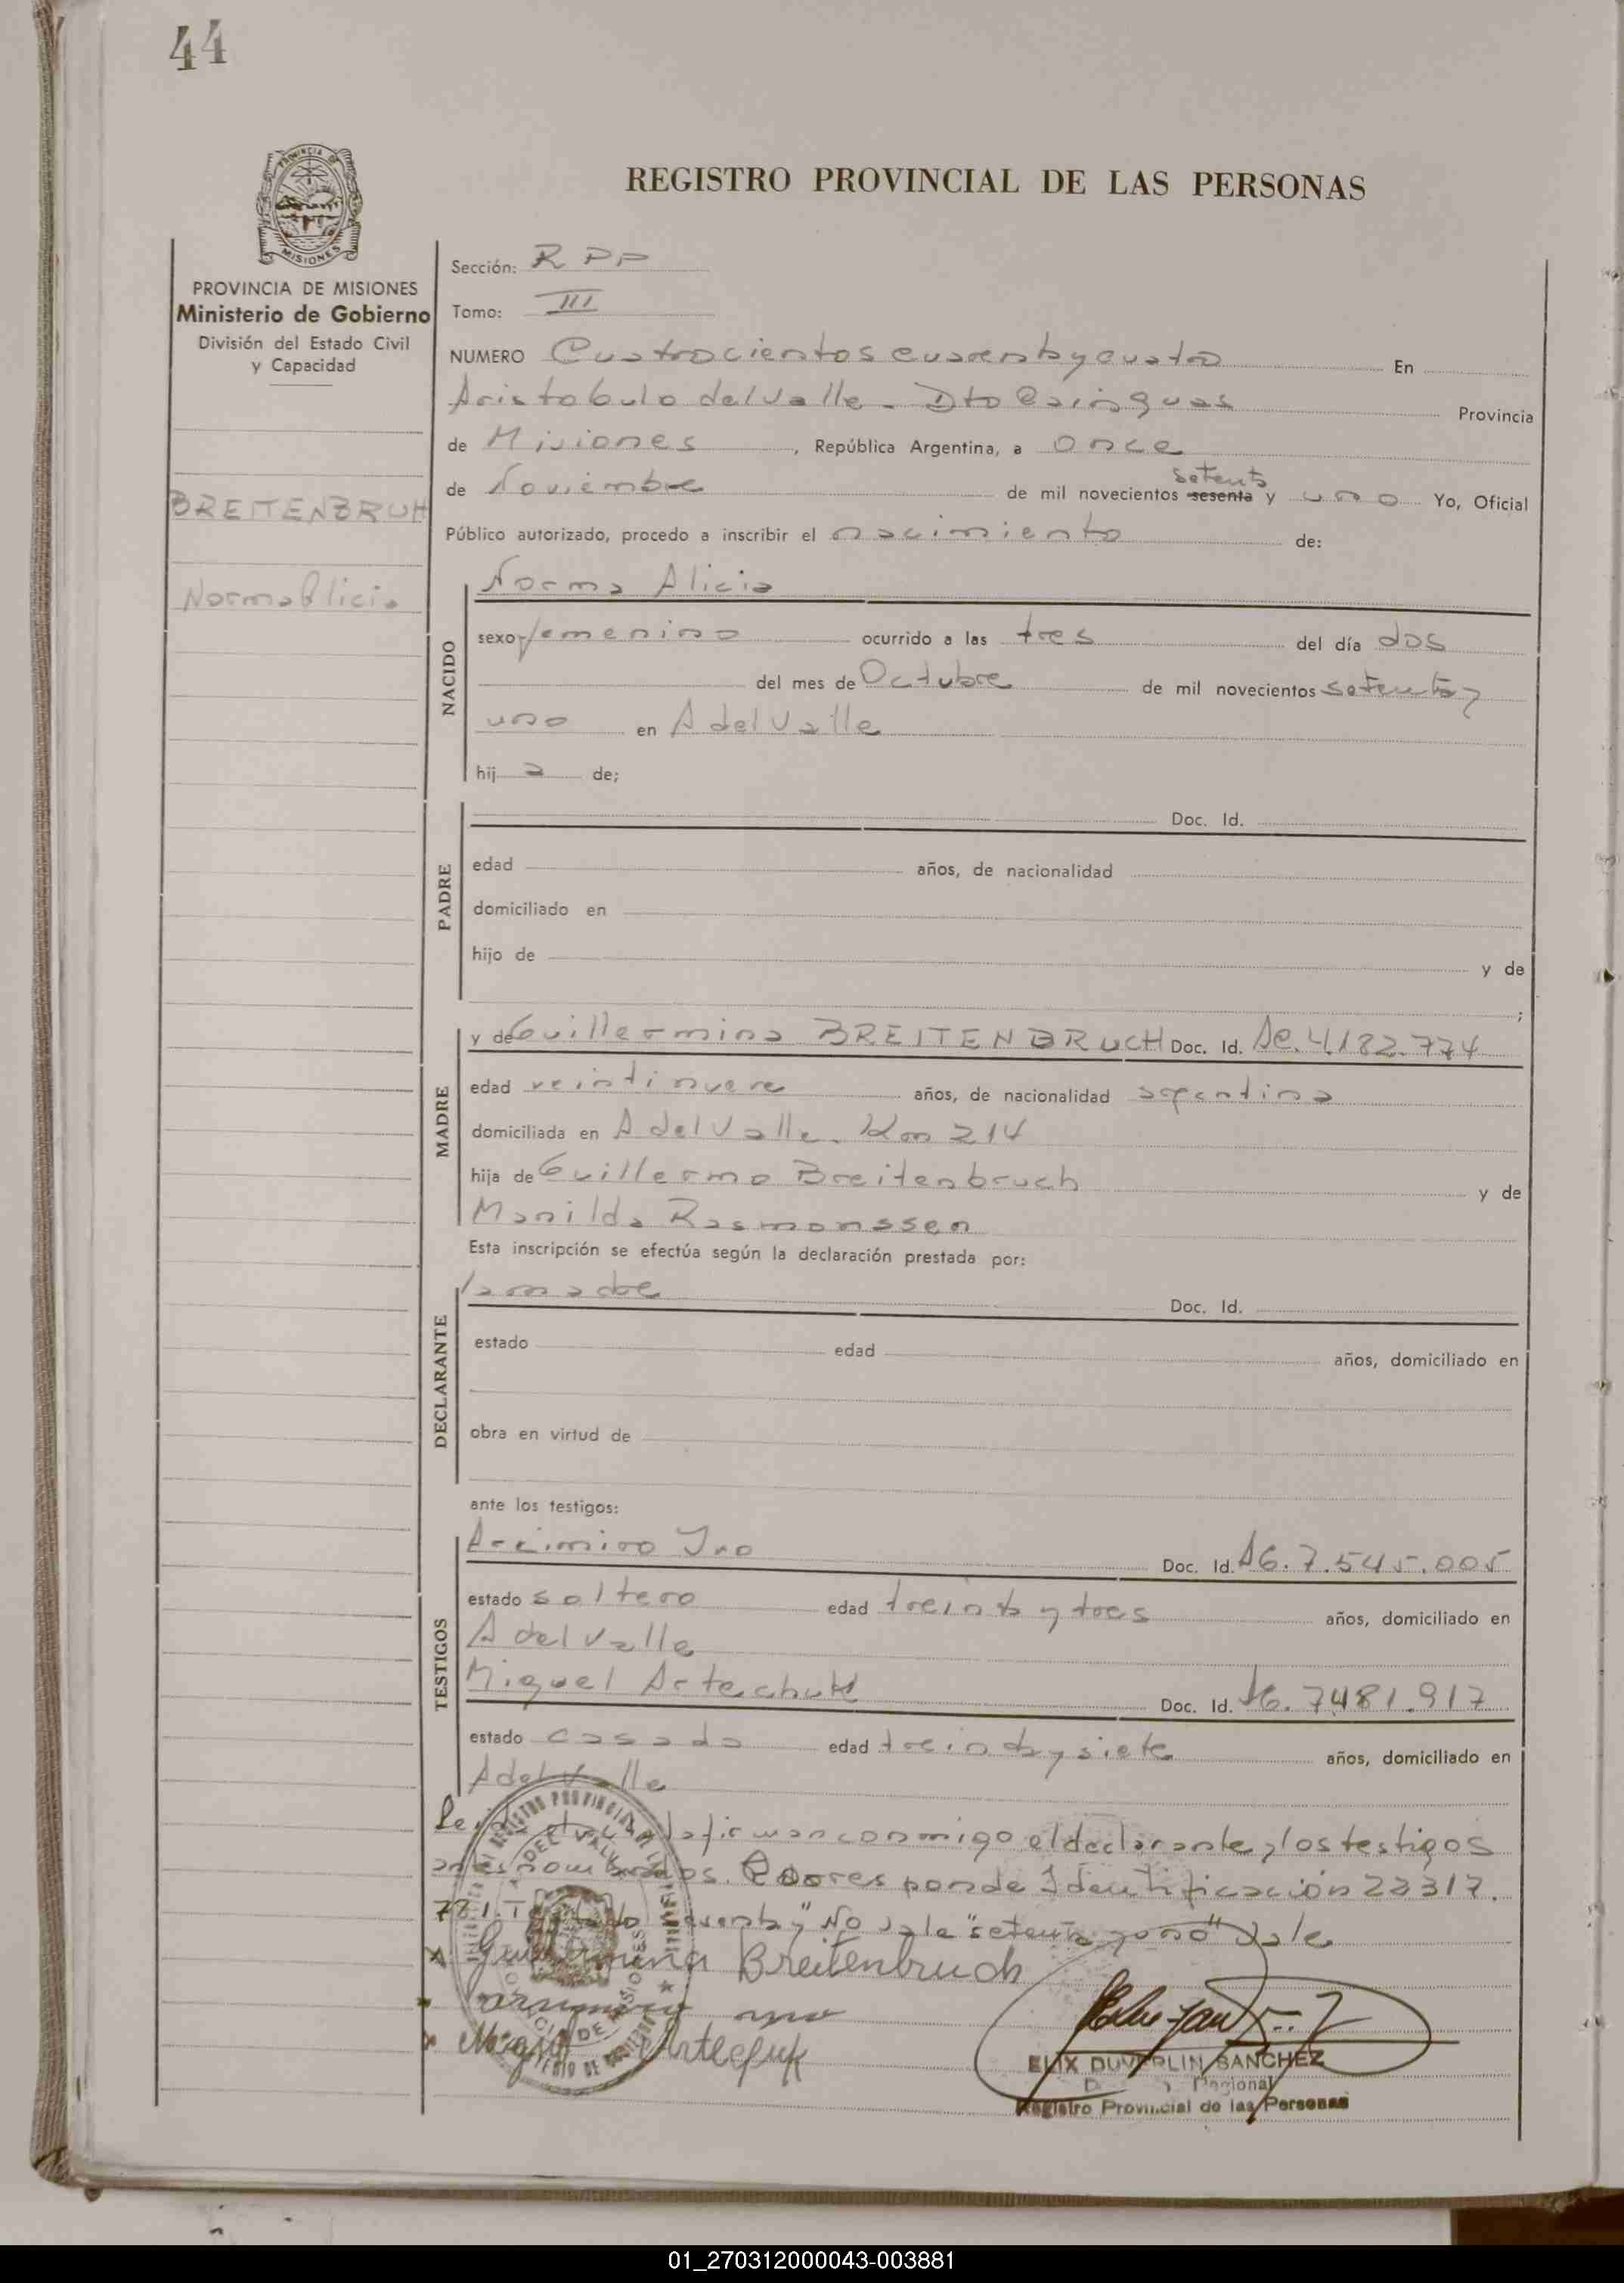 44
REGISTRO PROVINCIAL DE LAS PERSONAS
PROVINCIA DE MISIONES
Ministerio de Gobierno
División del Estado Civil
y Capacidad
BREITENBRUH
Norma Alicia
Sección: R P P
Tomo: III
NUMERO Cuatrocientos cuarenta y cuatro En
Aristobulo del Valle - Dto Cainguas Provincia
de Misiones, República Argentina, a once
setenta
de Noviembre de mil novecientos sesenta y uno Yo, Oficial
Público autorizado, procedo a inscribir el nacimiento de:
Norma Alicia
NACIDO
sexo femenino ocurrido a las tres del día dos
del mes de Octubre de mil novecientos setenta y
uno en A del Valle
hij a de;
PADRE
Doc. Id.
edad años, de nacionalidad
domiciliado en
hijo de y de
;
MADRE
y de Guillermina BREITENBRUCH Doc. Id. 4.182.774
edad veintinueve años, de nacionalidad argentina
domiciliada en A del Valle. Km 214
hija de Guillermo Breitenbruch y de
Manilda Rasmonssen
Esta inscripción se efectúa según la declaración prestada por:
DECLARANTE
la madre Doc. Id.
estado edad años, domiciliado en
obra en virtud de
ante los testigos:
TESTIGOS
Arcimiro Doc. Id. 7.545.005
estado soltero edad treinta y tres años, domiciliado en
A del Valle
Miguel Artechuk Doc. Id. 7481.917
estado casado edad treinta y siete años, domiciliado en
A del Valle
la firman conmigo el declarante y los testigos
antes nombrados. Corresponde Identificación 22317.
771. "No vale "setenta y uno" Vale
Guillermina Breitenbruch
ELIX DUVERLIN SANCHEZ
Regional
Registro Provincial de las Personas
01_270312000043-003881